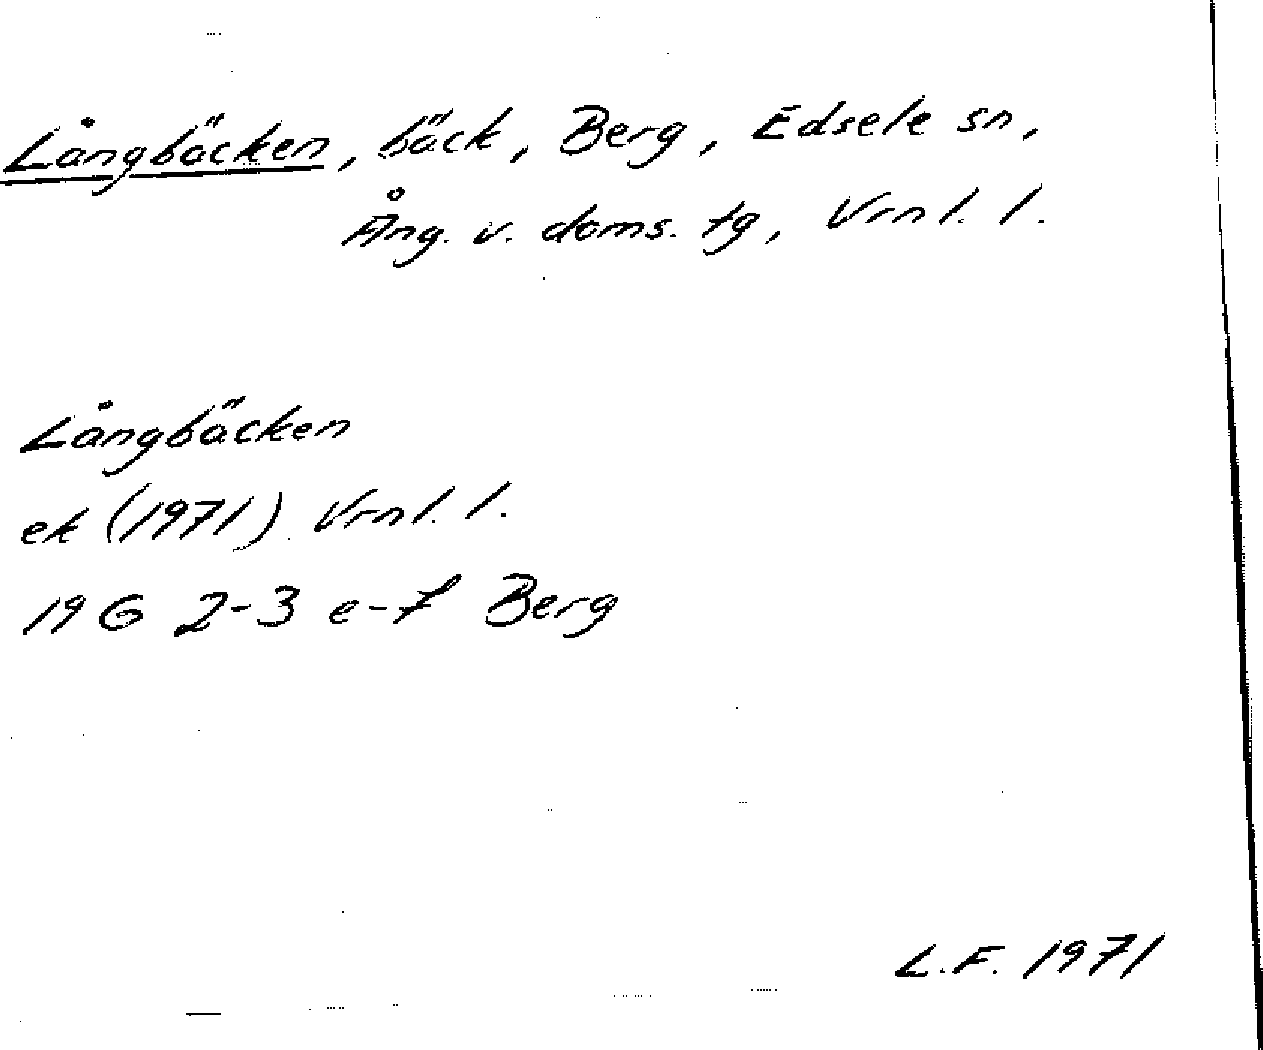 Långbäcken, bäck, Berg, Edsele sn,
Ång. v. doms. tg, Vrnl. l.
Långbäcken
ek (1971) Vrnl. l.
19 G 2-3 e-f Berg
L.F. 1971